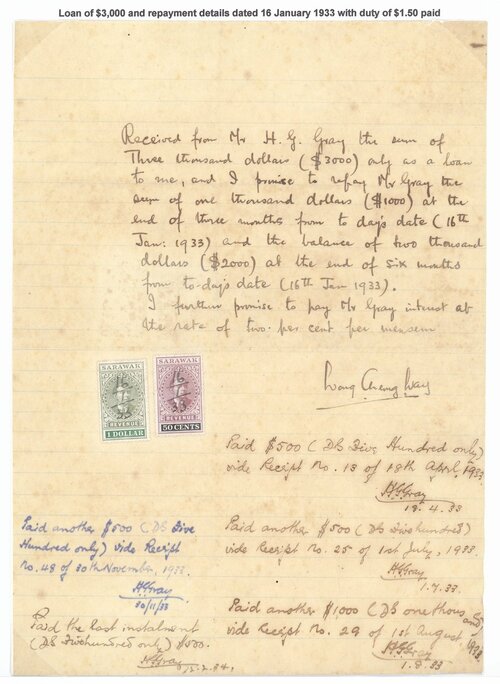 Loan of $3,000 and repayment details dated 16 January 1933 with duty of $1.50 paid
Received from Mr H. G. Gray the sum of
Three thousand dollars ($3000) only as a loan
to me, and I promise to repay Mr Gray the
sum of one thousand dollars ($1000) at the
end of three months from to day's date (16th
Jan: 1933) and the balance of two thousand
dollars ($2000) at the end of six months
from to-day's date (16th Jan 1933).
I further promise to pay Mr Gray interest at
the rate of two per cent per mensem
SARAWAK
16
1
33
REVENUE
1 DOLLAR
SARAWAK
16
1
33
REVENUE
50 CENTS
Paid $500 (D/s Five Hundred only)
vide Receipt No. 13 of 18th April, 1933
HGGray
18.4.33
Paid another $500 (D/s Five
Hundred only) vide Receipt
No. 48 of 30th November, 1933.
HGGray
30/11/33
Paid another $500 (D/s Fivehundred)
vide Receipt No. 25 of 1st July, 1933.
HGGray
1.7.33.
Paid another $1000 (D/s one thousand
vide Receipt No. 29 of 1st August 1933
HGGray
1.8.33
Paid the last instalment
(D/s Fivehundred only) $500.
HGGray
2.34.